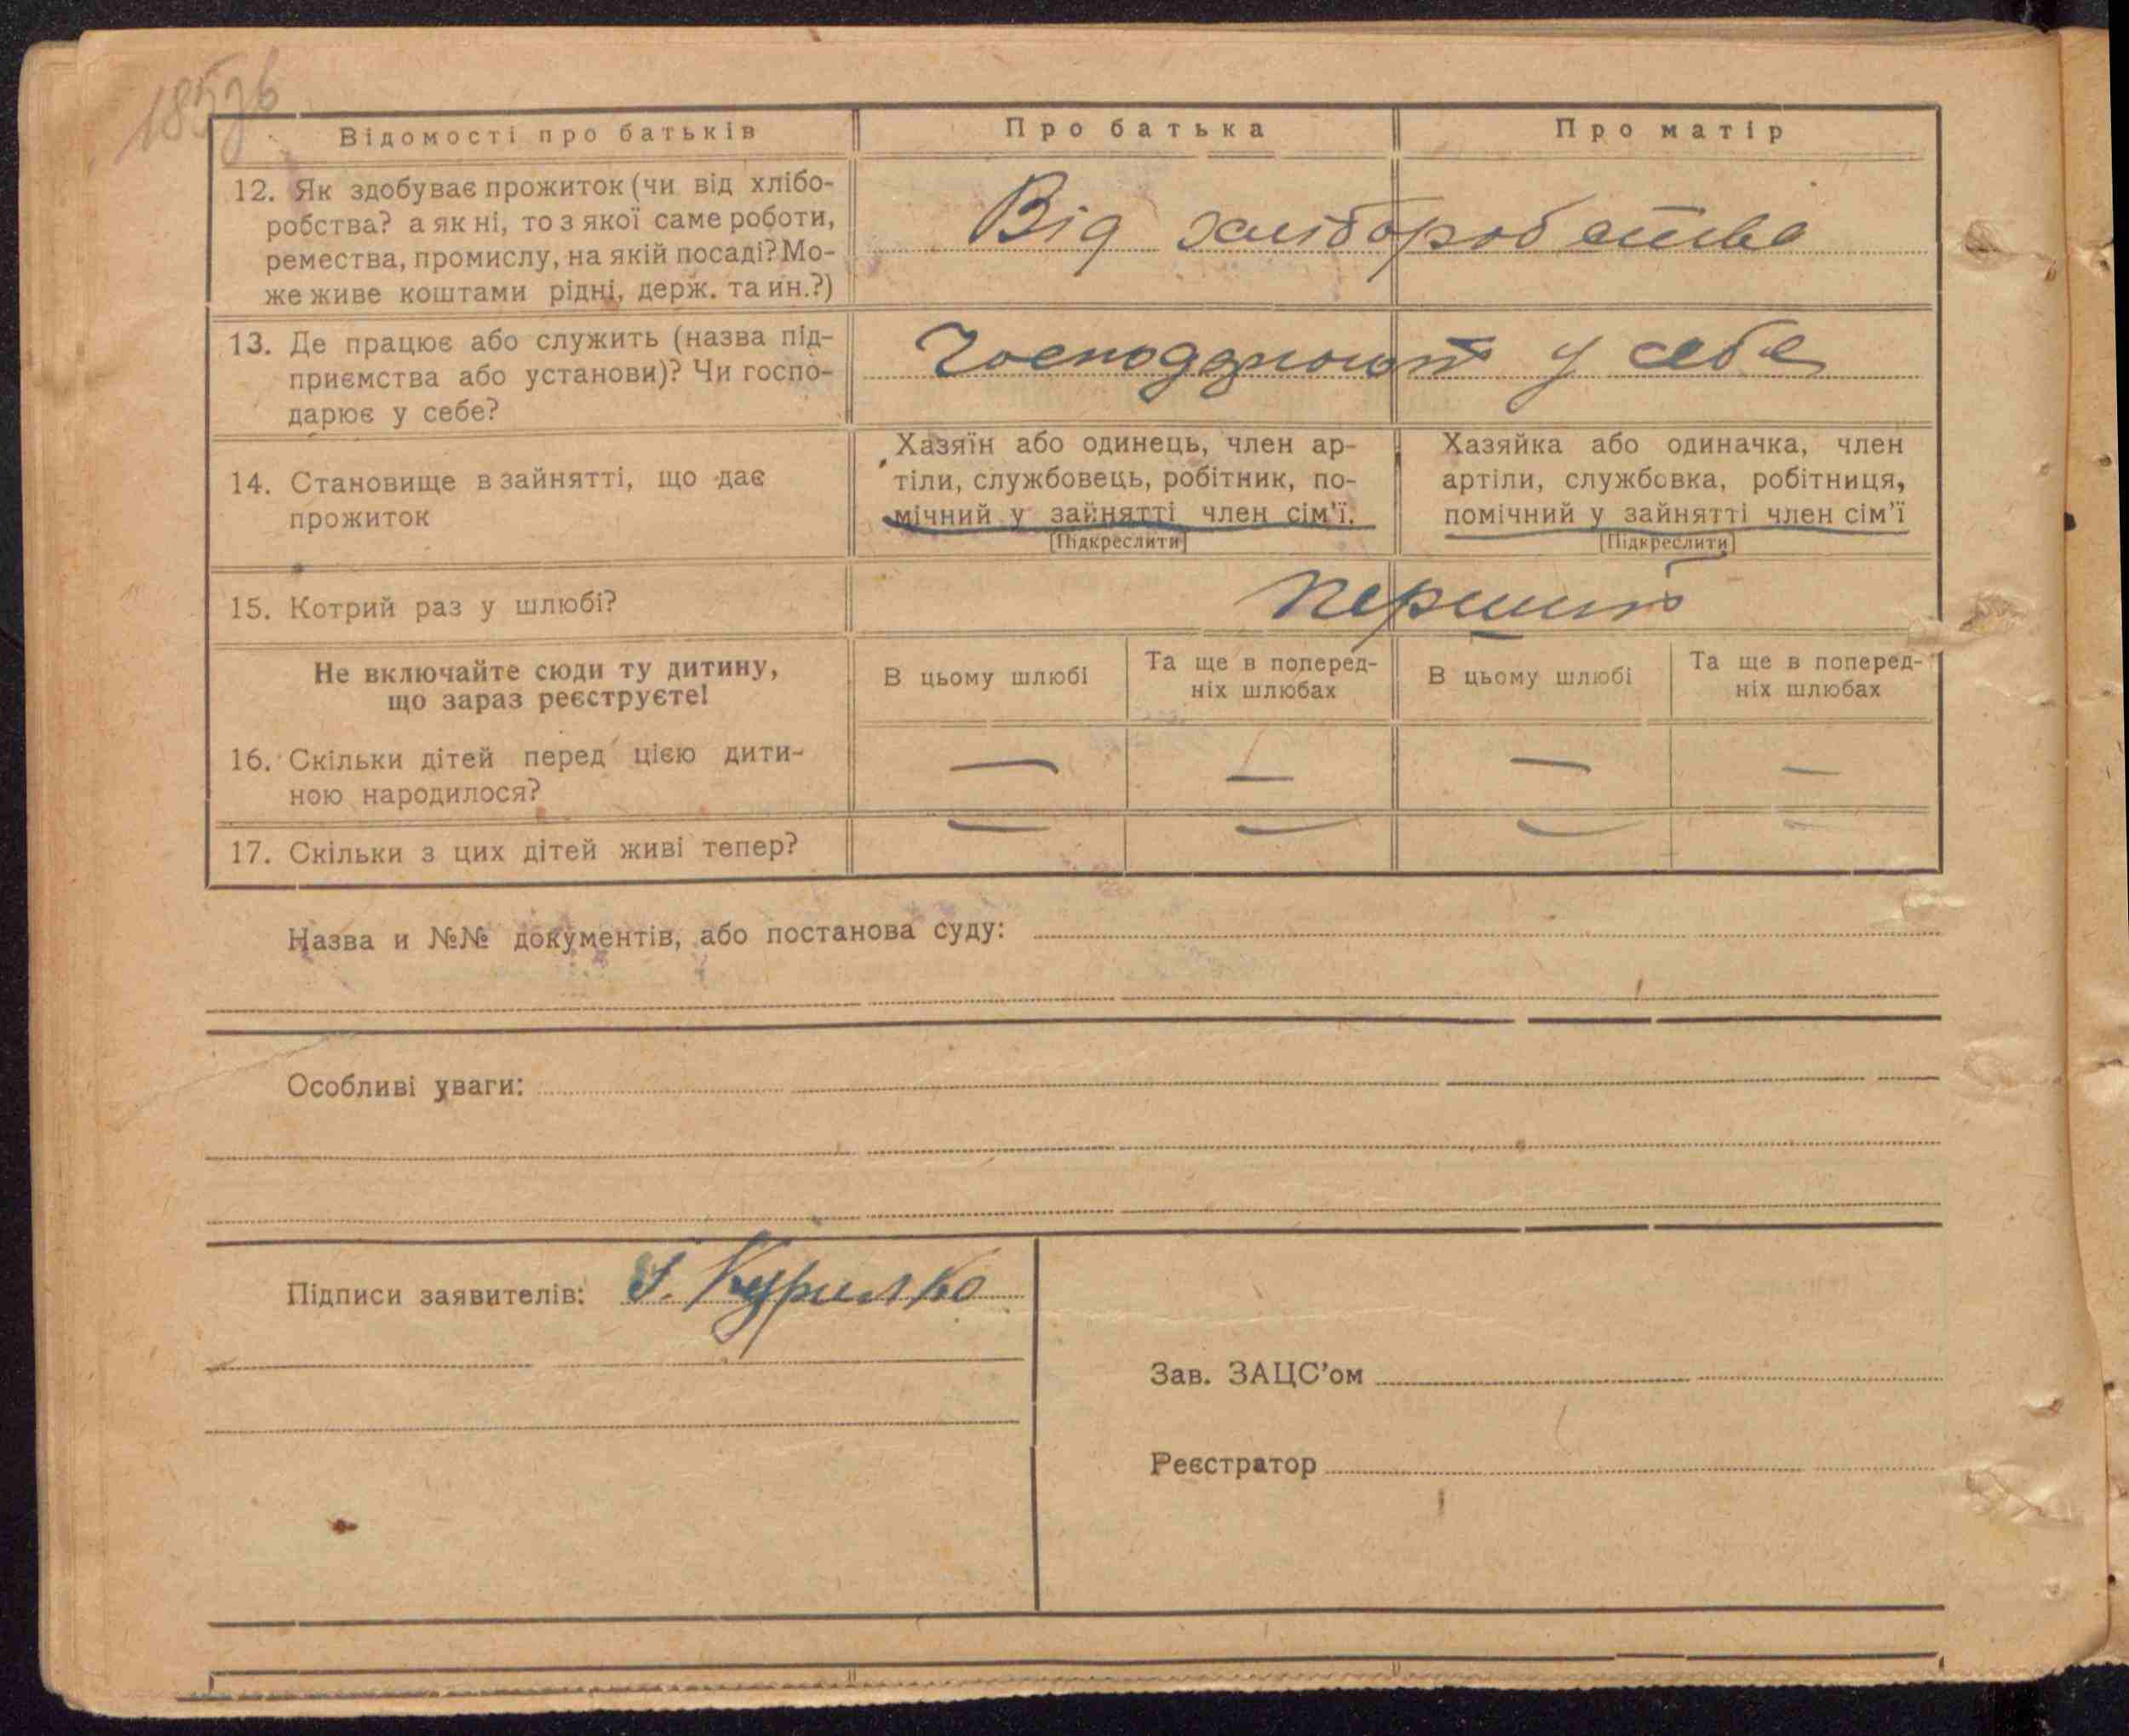 185зв
Відомості про батьків
Про батька
Про матір
12. Як здобуває прожиток (чи від хлібо-
робства? а як ні, то з якої саме роботи,
ремества, промислу, на якій посаді? Мо-
же живе коштами рідні, держ. та ин.?)
Від хліборобства
13. Де працює або служить (назва під-
приємства або установи)? Чи госпо-
дарює у себе?
Господарюют у себе
14. Становище в зайнятті, що дає
прожиток
Хазяїн або одинець, член ар-
тіли, службовець, робітник, по-
мічний у зайнятті член сім'ї.
[Підкреслити]
Хазяйка або одиначка, член
артіли, службовка, робітниця,
помічний у зайнятті член сім'ї
[Підкреслити]
15. Котрий раз у шлюбі?
перший
Не включайте сюди ту дитину,
що зараз реєструєте!
В цьому шлюбі
Та ще в поперед-
ніх шлюбах
В цьому шлюбі
Та ще в поперед-
ніх шлюбах
16. Скільки дітей перед цією дити-
ною народилося?
— — — —
17. Скільки з цих дітей живі тепер?
— — — —
Назва и №№ документів, або постанова суду:
Особливі уваги:
Підписи заявителів: І. Курилко
Зав. ЗАЦС'ом
Реєстратор